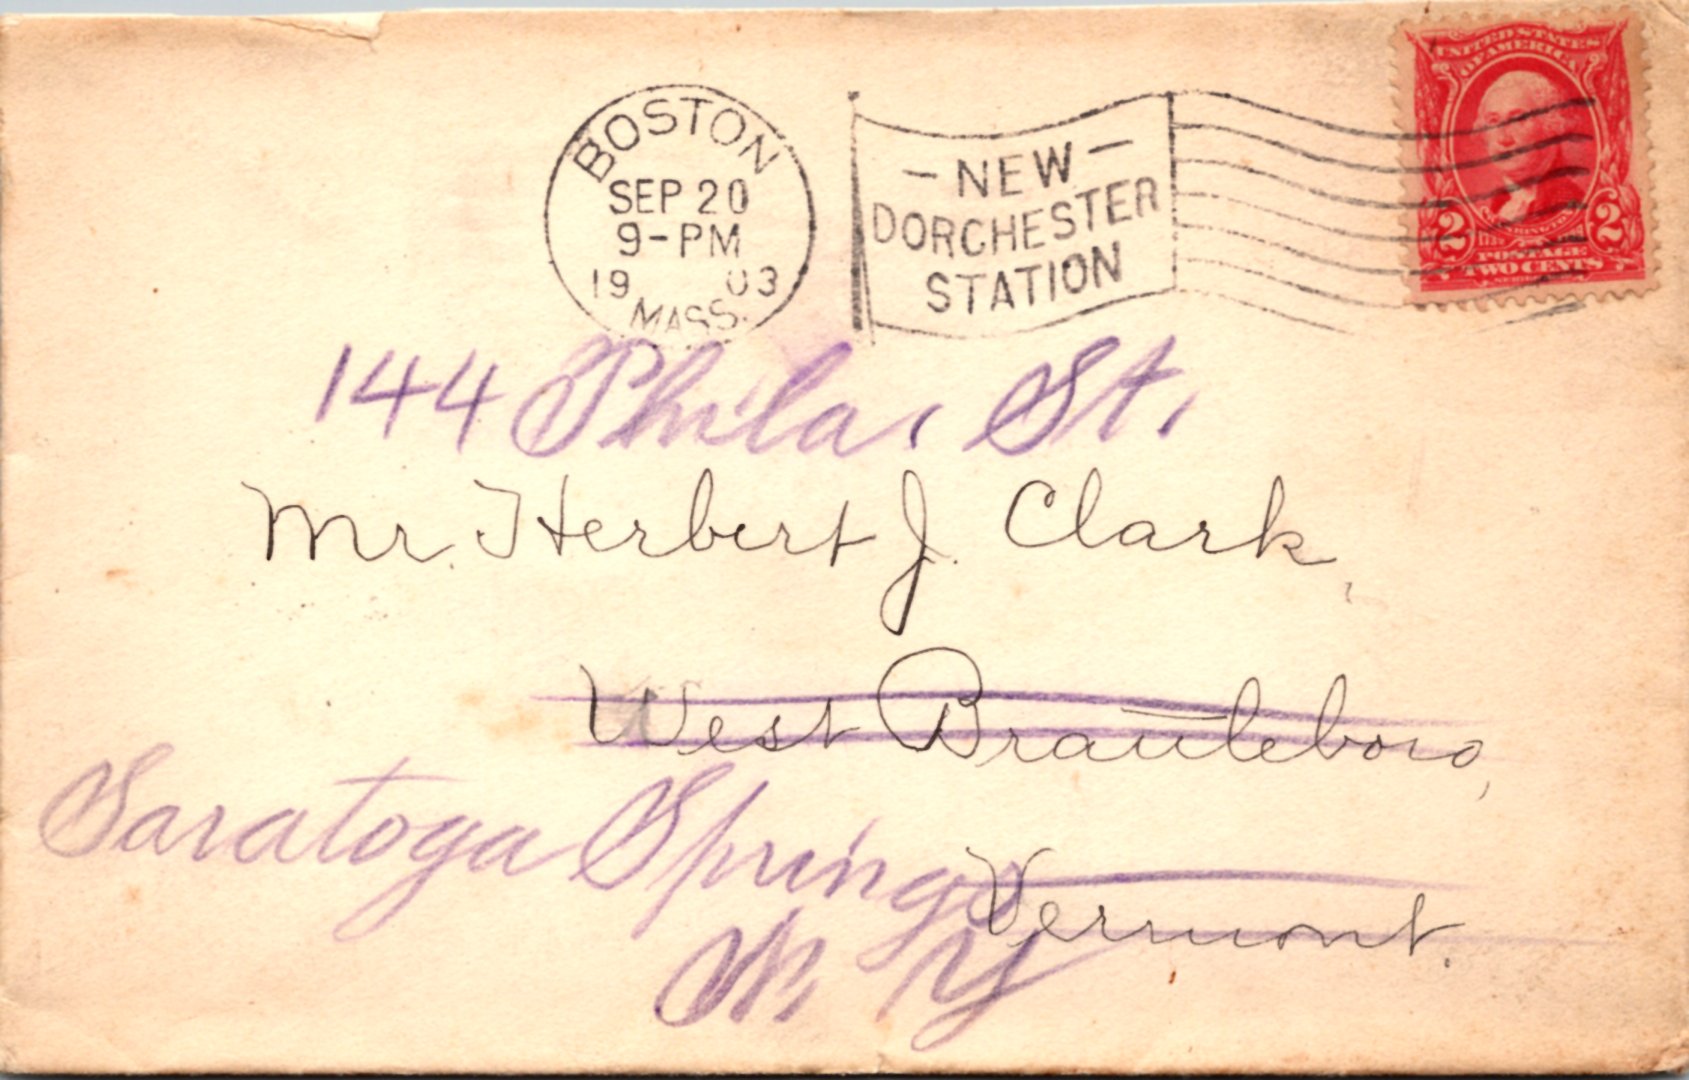 UNITED STATES
OF AMERICA
2 2
POSTAGE
TWO CENTS
BOSTON
SEP 20
9-PM
19 03
MASS.
- NEW -
DORCHESTER
STATION
144 Phila. St.
Mr. Herbert J. Clark,
West Brattleboro,
Vermont.
Saratoga Springs
N. Y